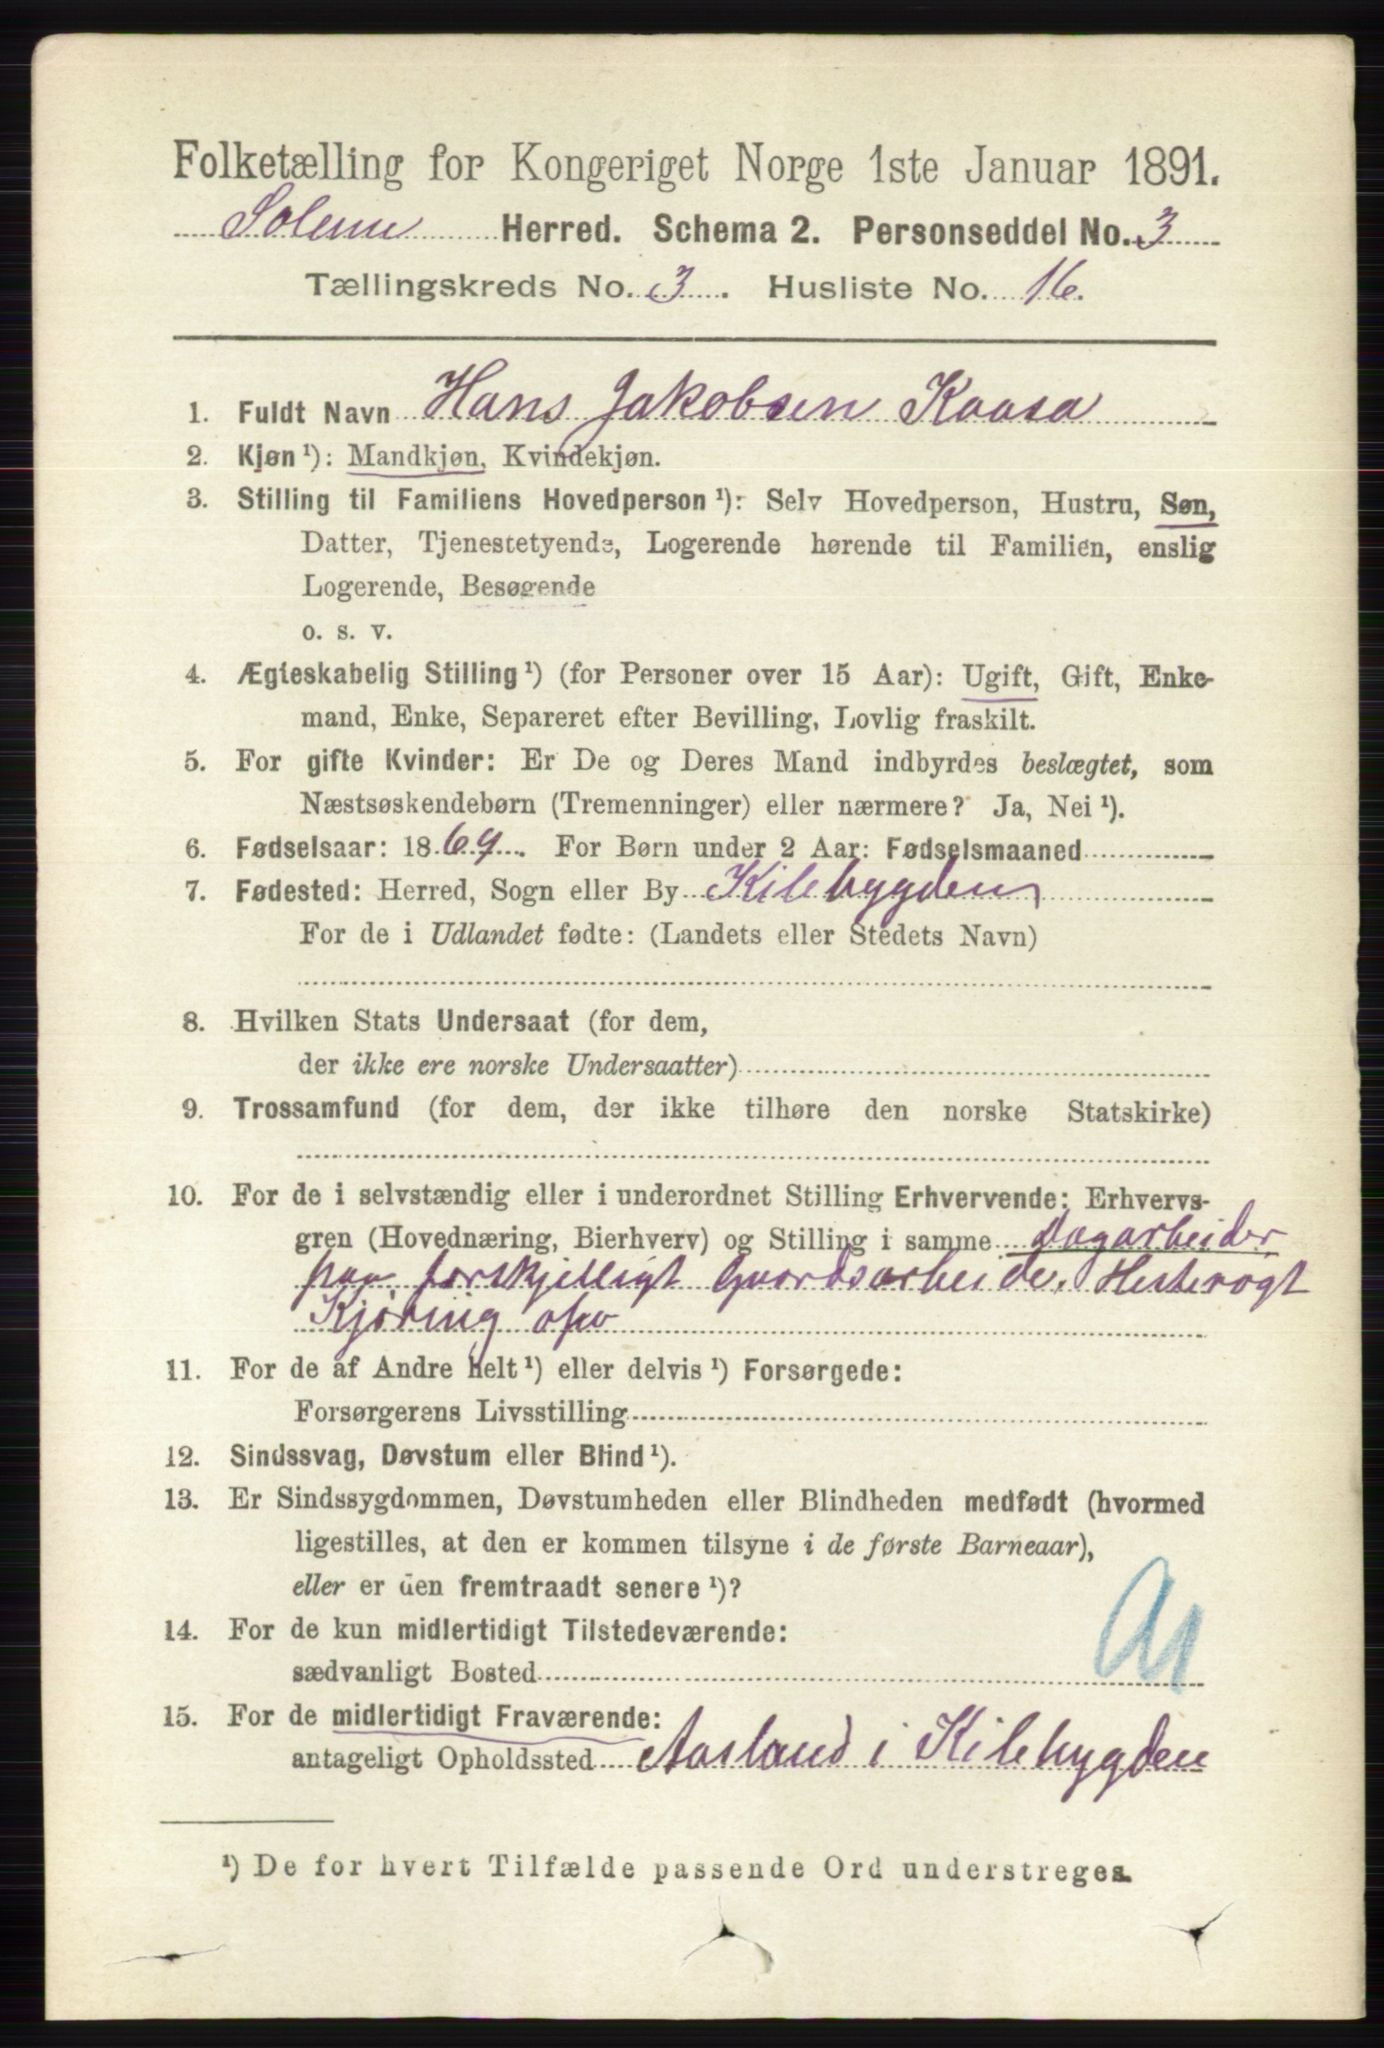 Folketælling for Kongeriget Norge 1ste Januar 1891.
Solum Herred. Schema 2. Personseddel No. 3
Tællingskreds No. 3. Husliste No. 16.
1. Fuldt Navn Hans Jakobsen Kaasa
2. Kjøn ¹): Mandkjøn, Kvindekjøn.
3. Stilling til Familiens Hovedperson ¹): Selv Hovedperson, Hustru, Søn,
Datter, Tjenestetyende, Logerende hørende til Familien, enslig
Logerende, Besøgende
o. s. v.
4. Ægteskabelig Stilling ¹) (for Personer over 15 Aar): Ugift, Gift, Enke-
mand, Enke, Separeret efter Bevilling, Lovlig fraskilt.
5. For gifte Kvinder: Er De og Deres Mand indbyrdes beslægtet, som
Næstsøskendebørn (Tremenninger) eller nærmere? Ja, Nei ¹).
6. Fødselsaar: 1869. For Børn under 2 Aar: Fødselsmaaned
7. Fødested: Herred, Sogn eller By Kilebygden
For de i Udlandet fødte: (Landets eller Stedets Navn)
8. Hvilken Stats Undersaat (for dem,
der ikke ere norske Undersaatter)
9. Trossamfund (for dem, der ikke tilhøre den norske Statskirke)
10. For de i selvstændig eller i underordnet Stilling Erhvervende: Erhvervs-
gren (Hovednæring, Bierhverv) og Stilling i samme Dagarbeider
paa forskjelligt Gaardsarbeide. Hesterøgt
Kjøring osv
11. For de af Andre helt ¹) eller delvis ¹) Forsørgede:
Forsørgerens Livsstilling
12. Sindssvag, Døvstum eller Blind ¹).
13. Er Sindssygdommen, Døvstumheden eller Blindheden medfødt (hvormed
ligestilles, at den er kommen tilsyne i de første Barneaar),
eller er den fremtraadt senere ¹)?
14. For de kun midlertidigt Tilstedeværende:
sædvanligt Bosted
15. For de midlertidigt Fraværende:
antageligt Opholdssted Aasland i Kilebygden
¹) De for hvert Tilfælde passende Ord understreges.